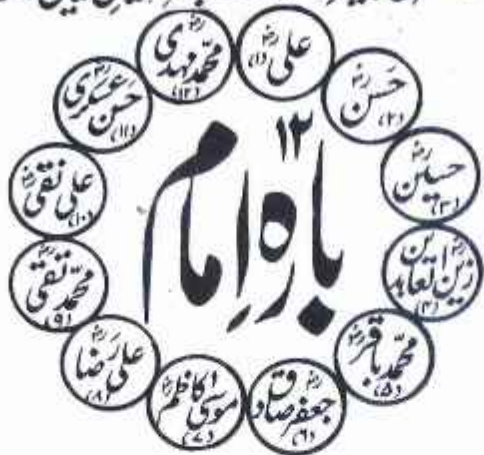 ۱۲
بارہ امام
علی رض
(۱)
حسن رض
(۲)
حسین رض
(۳)
زین العابدین رض
(۴)
محمد باقر رض
(۵)
جعفر صادق رض
(۶)
موسیٰ کاظم رض
(۷)
علی رضا رض
(۸)
محمد تقی رض
(۹)
علی نقی رض
(۱۰)
حسن عسکری رض
(۱۱)
محمد مہدی رض
(۱۲)